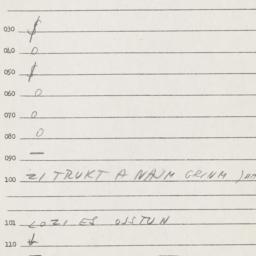 030 $
040 0
050 $
060 0
070 0
080 0
090 —
100 ZI TRUKT A NAJM GRINM
101 LOZI ES OSSTUN
110 ↓